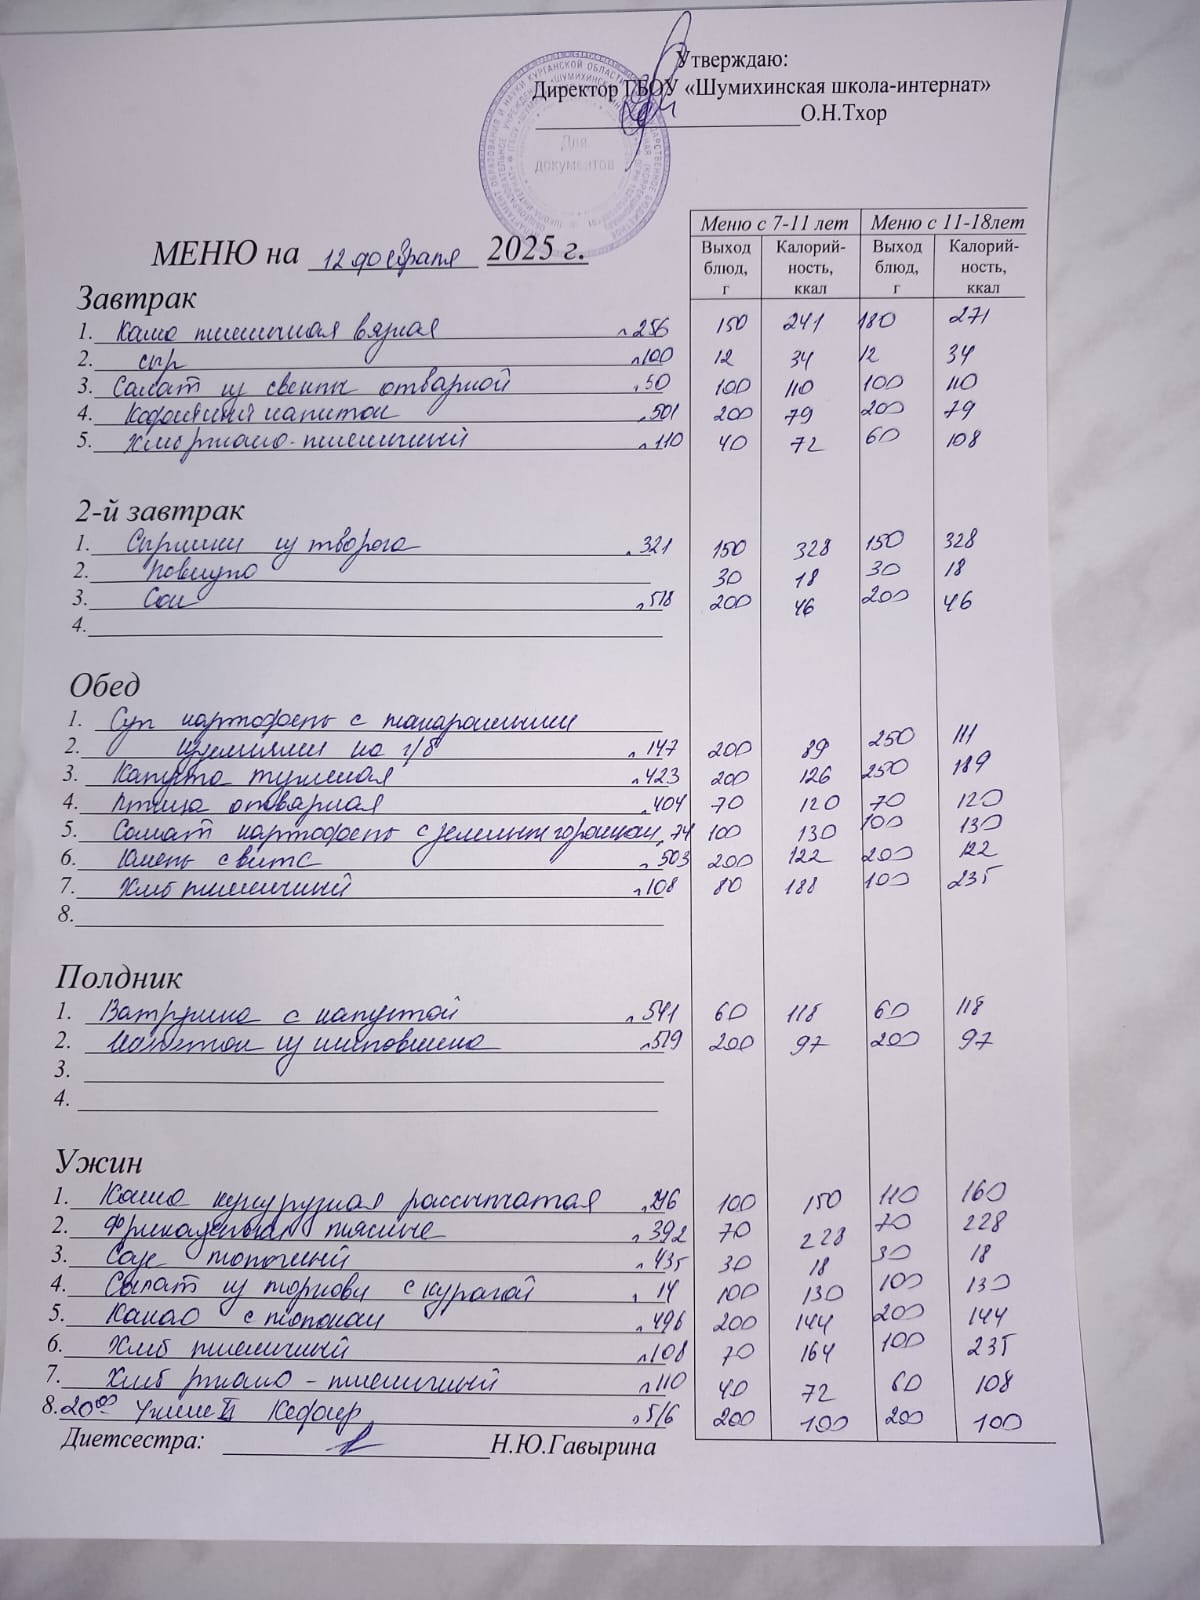 Утверждаю:
Директор ГБОУ «Шумихинская школа-интернат»
О.Н.Тхор
Для
документов
МЕНЮ на 12 февраля 2025 г.
Меню с 7-11 лет Меню с 11-18лет
Выход блюд, г Калорий-ность, ккал Выход блюд, г Калорий-ность, ккал
Завтрак
1. Каша пшеничная вязкая 256 150 241 180 271
2. сыр 100 12 34 12 34
3. Салат из свеклы отварной 50 100 110 100 110
4. Кофейный напиток 501 200 79 200 79
5. Хлеб ржано-пшеничный 110 40 72 60 108
2-й завтрак
1. Сырники из творога 321 150 328 150 328
2. Повидло 30 18 30 18
3. Сок 518 200 46 200 46
4.
Обед
1. Суп картофель с макаронными
2. изделиями на г/б 147 200 89 250 111
3. Капуста тушеная 423 200 126 250 189
4. Птица отварная 404 70 120 70 120
5. Салат картофель с зеленым горошком 74 100 130 100 130
6. Кисель с витс 503 200 122 200 122
7. Хлеб пшеничный 108 80 188 100 235
8.
Полдник
1. Ватрушка с капустой 541 60 118 60 118
2. Напиток из шиповника 519 200 97 200 97
3.
4.
Ужин
1. Каша кукурузная рассыпчатая 100 150 110 160
2. Фрикадельки мясные 392 70 228 70 228
3. Соус молочный 435 30 18 30 18
4. Салат из моркови с курагой 14 100 130 100 130
5. Какао с молоком 496 200 144 200 144
6. Хлеб пшеничный 108 70 164 100 235
7. Хлеб ржано-пшеничный 110 40 72 60 108
8. 20⁰⁰ Ужин II Кефир 516 200 100 200 100
Диетсестра: Н.Ю.Гавырина